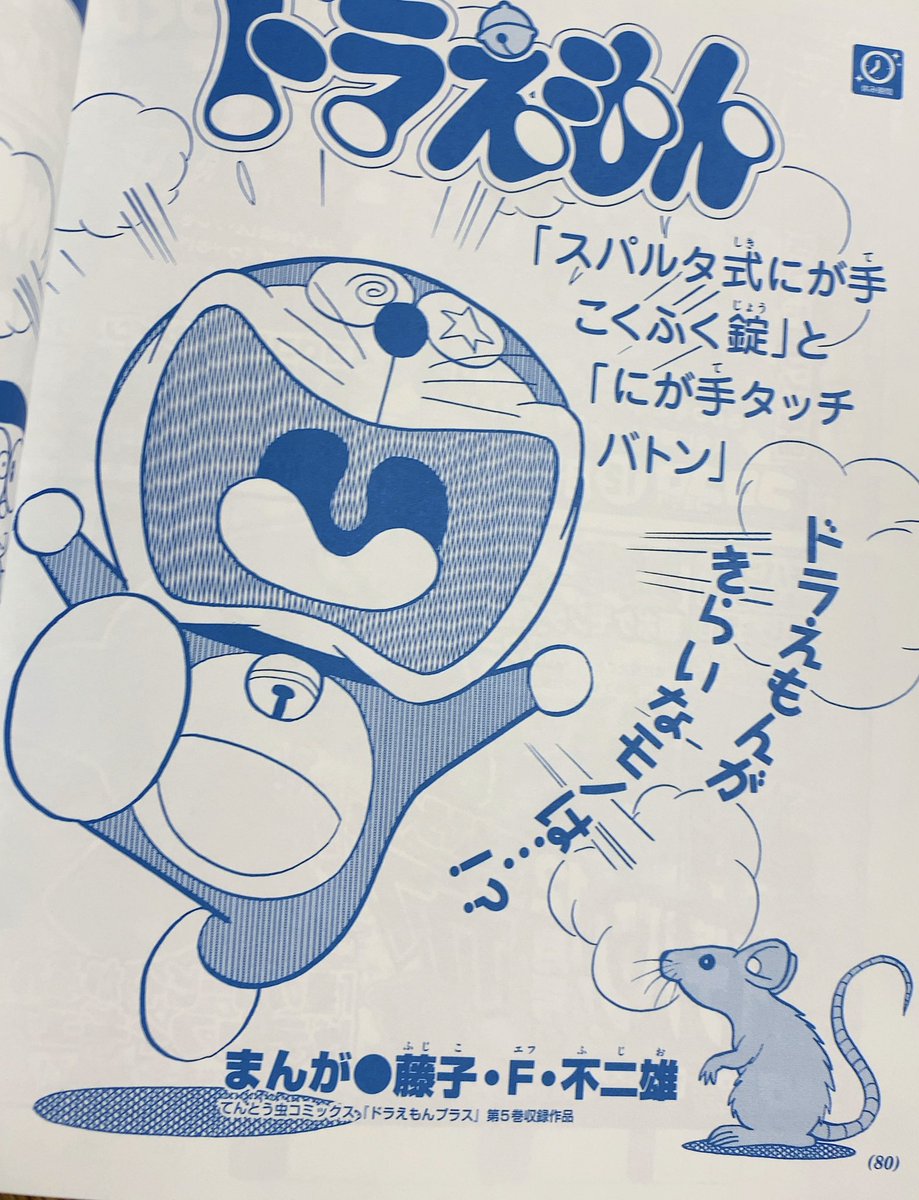 ドラえもん
「スパルタ式にが手
こくふく錠」と
「にが手タッチ
バトン」
ドラえもんが
きらいなモノは……!?
まんが●藤子・F・不二雄
てんとう虫コミックス・「ドラえもんプラス」第5巻収録作品
(80)